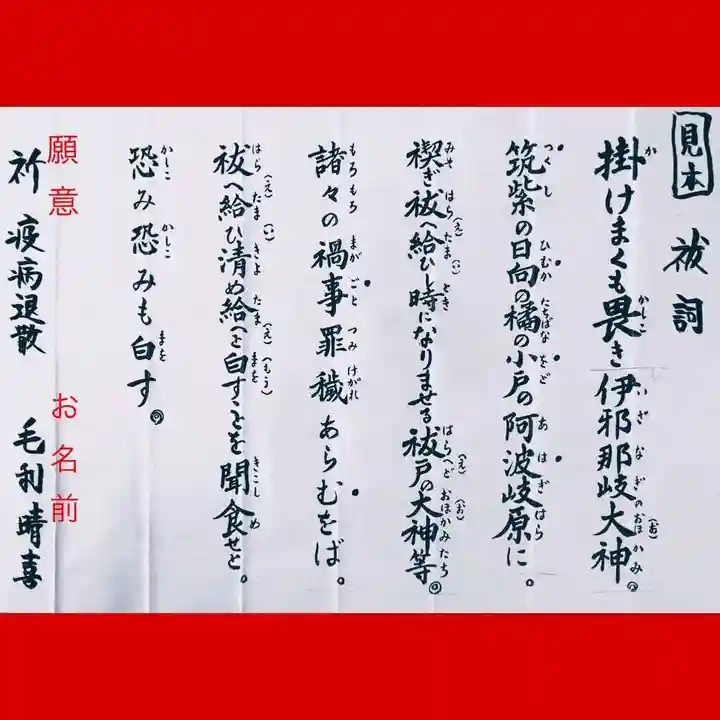 見本
祓詞
掛けまくも畏き伊邪那岐大神。
筑紫の日向の橘の小戸の阿波岐原に。
禊ぎ祓へ給ひし時になりませる祓戸の大神等。
諸々の禍事罪穢あらむをば。
祓へ給ひ清め給へを白すことを聞食せと。
恐み恐みも白す。
願意 お名前
祈 疫病退散 毛利晴喜